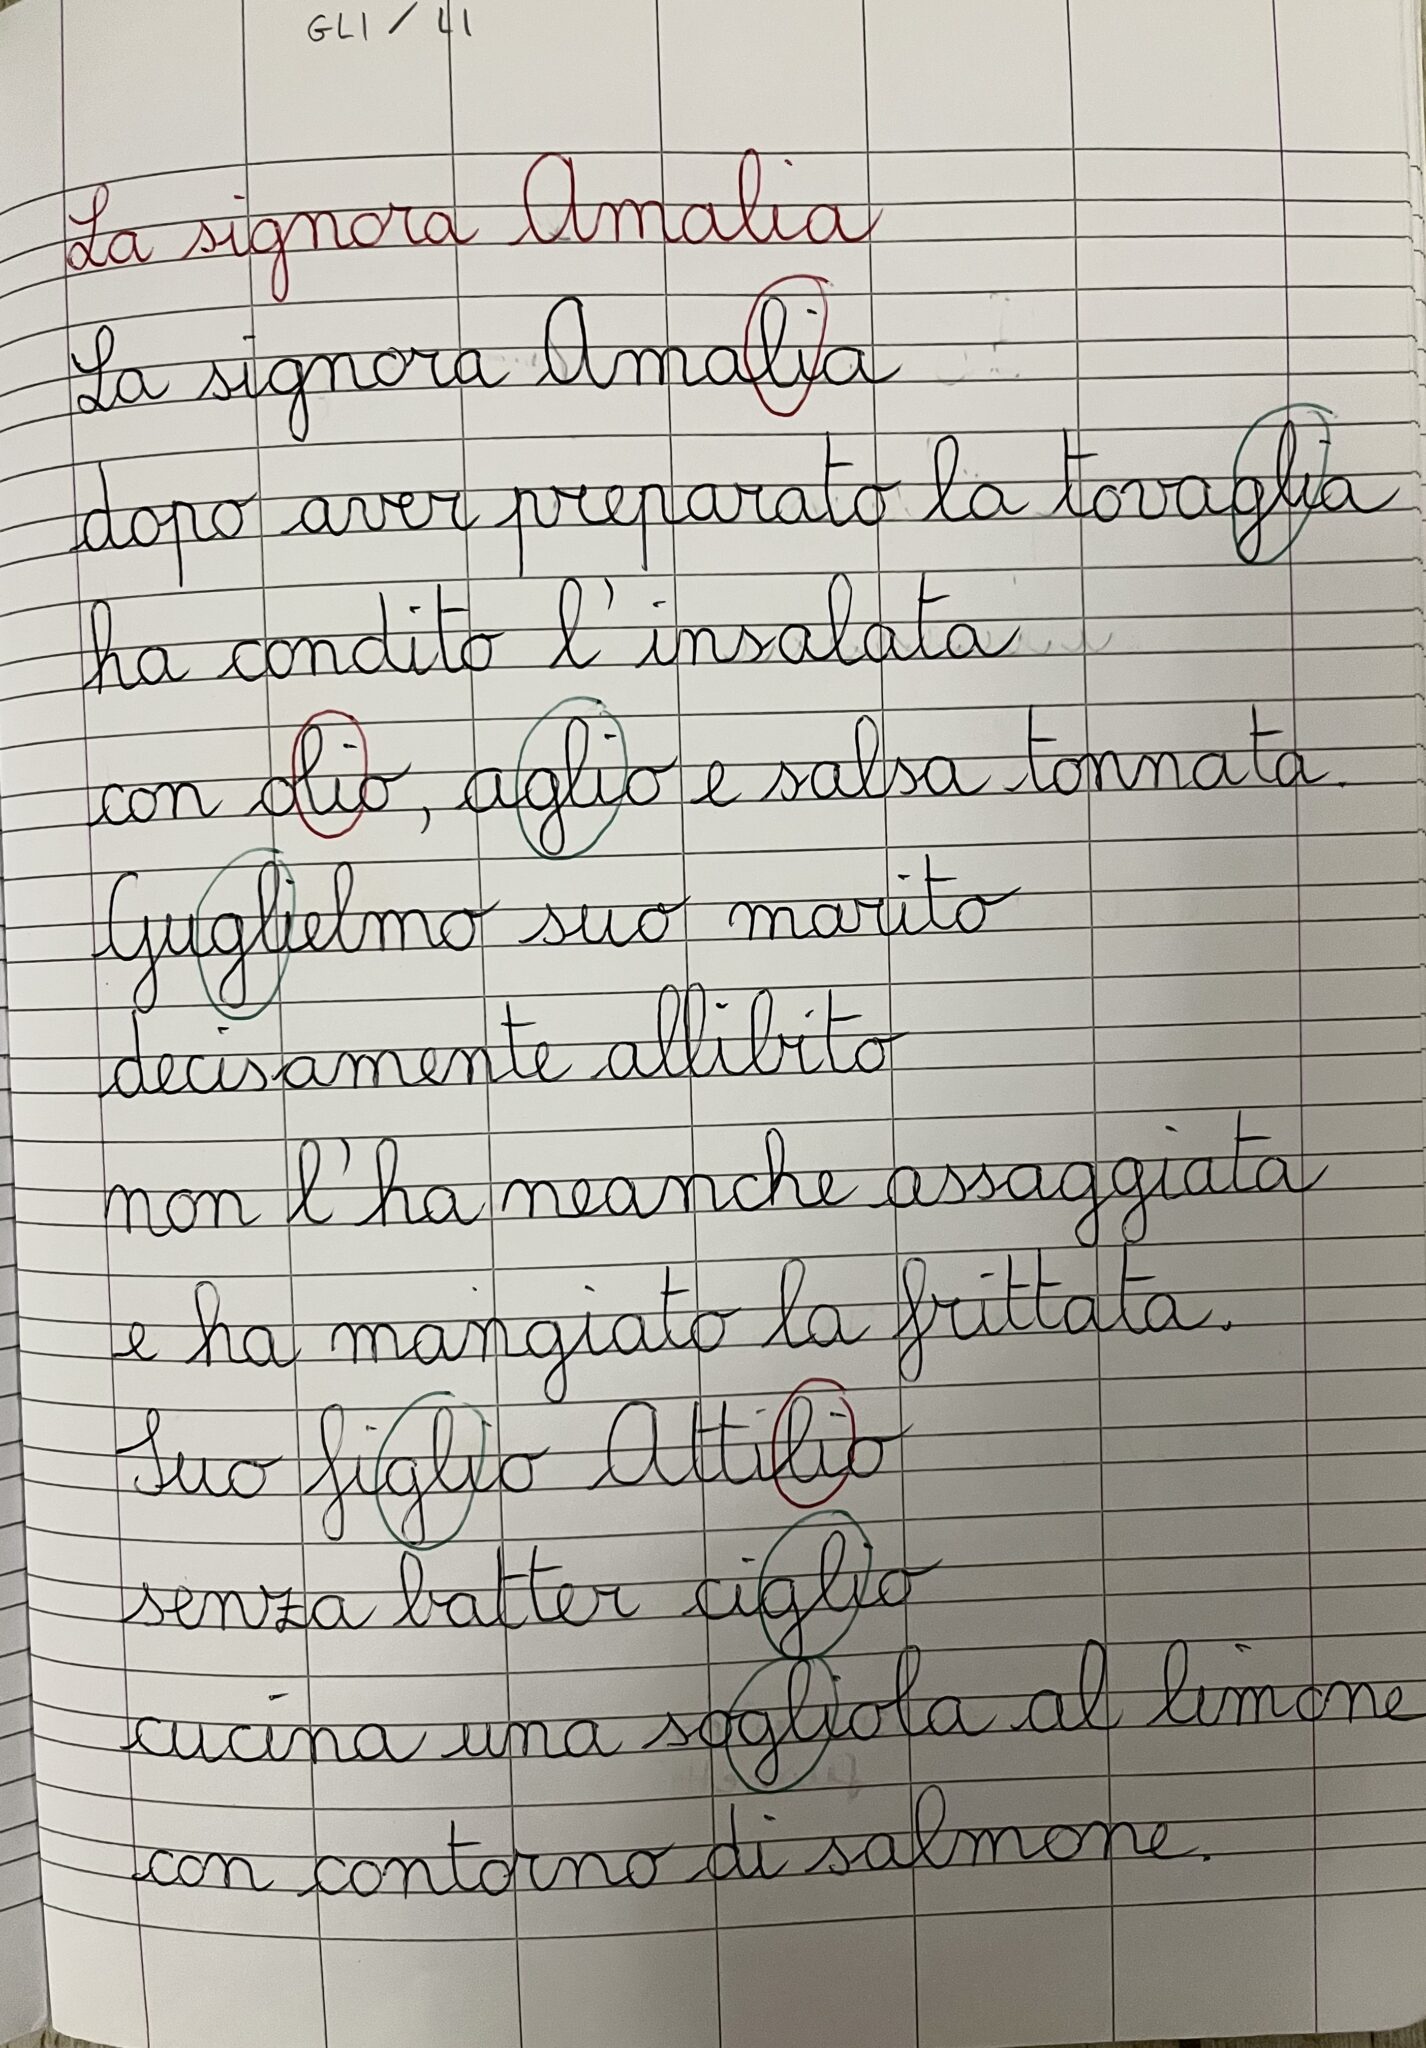 GLI / LI
La signora Amalia
La signora Amalia
dopo aver preparato la tovaglia
ha condito l'insalata
con olio, aglio e salsa tonnata.
Guglielmo suo marito
decisamente allibito
non l'ha neanche assaggiata
e ha mangiato la frittata.
Suo figlio Attilio
senza batter ciglio
cucina una sogliola al limone
con contorno di salmone.